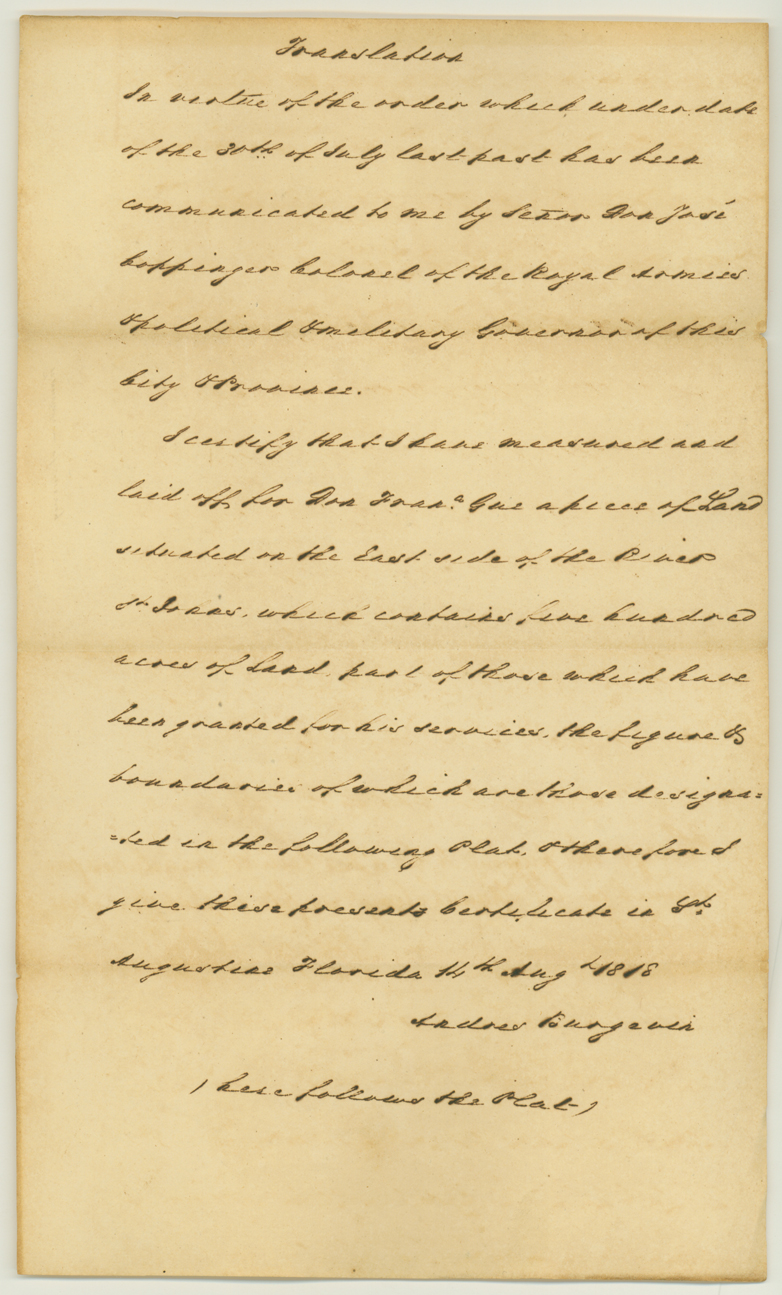 Translation
In virtue of the order which under date
of the 30th of July last past has been
communicated to me by Señor Don José
Coppinger Colonel of the Royal Armies
& political & military Governor of this
City & Province.
I certify that I have measured and
laid off for Don Franᶜᵒ. Gue a piece of Land
situated on the East side of the River
St. Johns, which contains five hundred
acres of Land, part of those which have
been granted for his services, the figure &
boundaries of which are those designa=
=ted in the following Plat, & therefore I
give these presents Certificate in St.
Augustine Florida 14th Augt 1818
Andres Burgevin
(here follows the Plat)